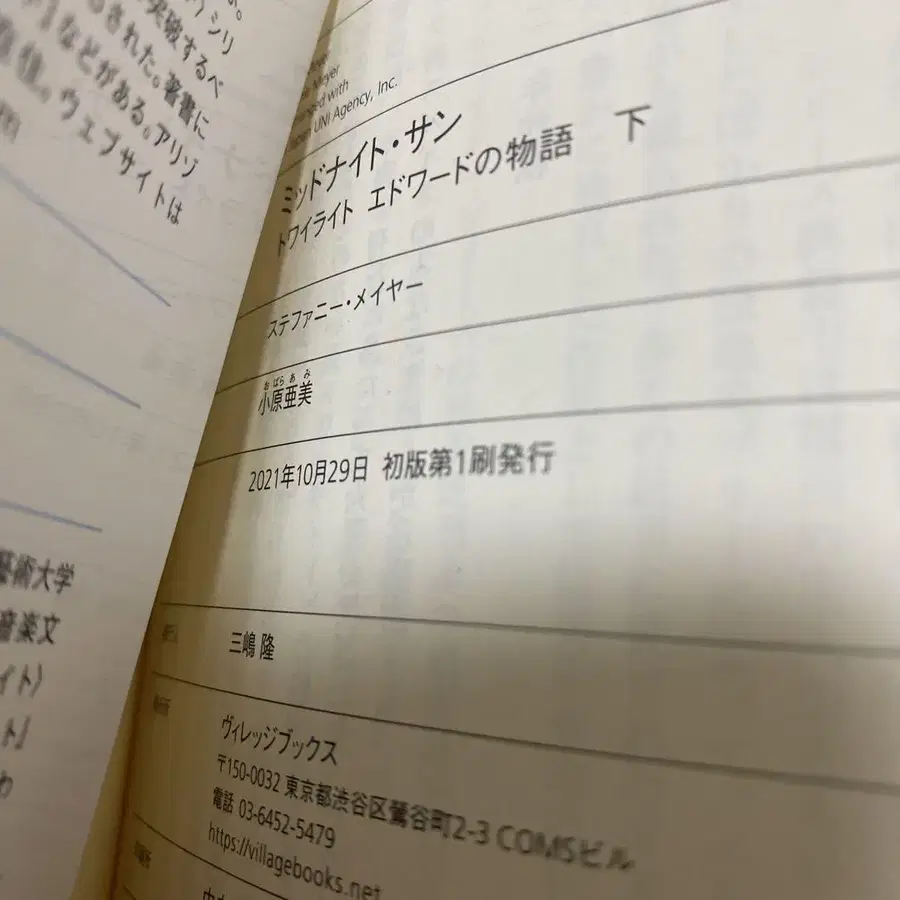 シリ
突破するべ
された。著書に
』などがある。アリゾ
ウェブサイトは
藝術大学
音楽文
イト〉
ト』
わ
Meyer
with
UNI Agency, Inc.
ミッドナイト・サン
トワイライト エドワードの物語 下
ステファニー・メイヤー
おばら あみ
小原亜美
2021年10月29日 初版第1刷発行
三嶋 隆
ヴィレッジブックス
〒150-0032 東京都渋谷区鶯谷町2-3 COMSビル
電話 03-6452-5479
https://villagebooks.net